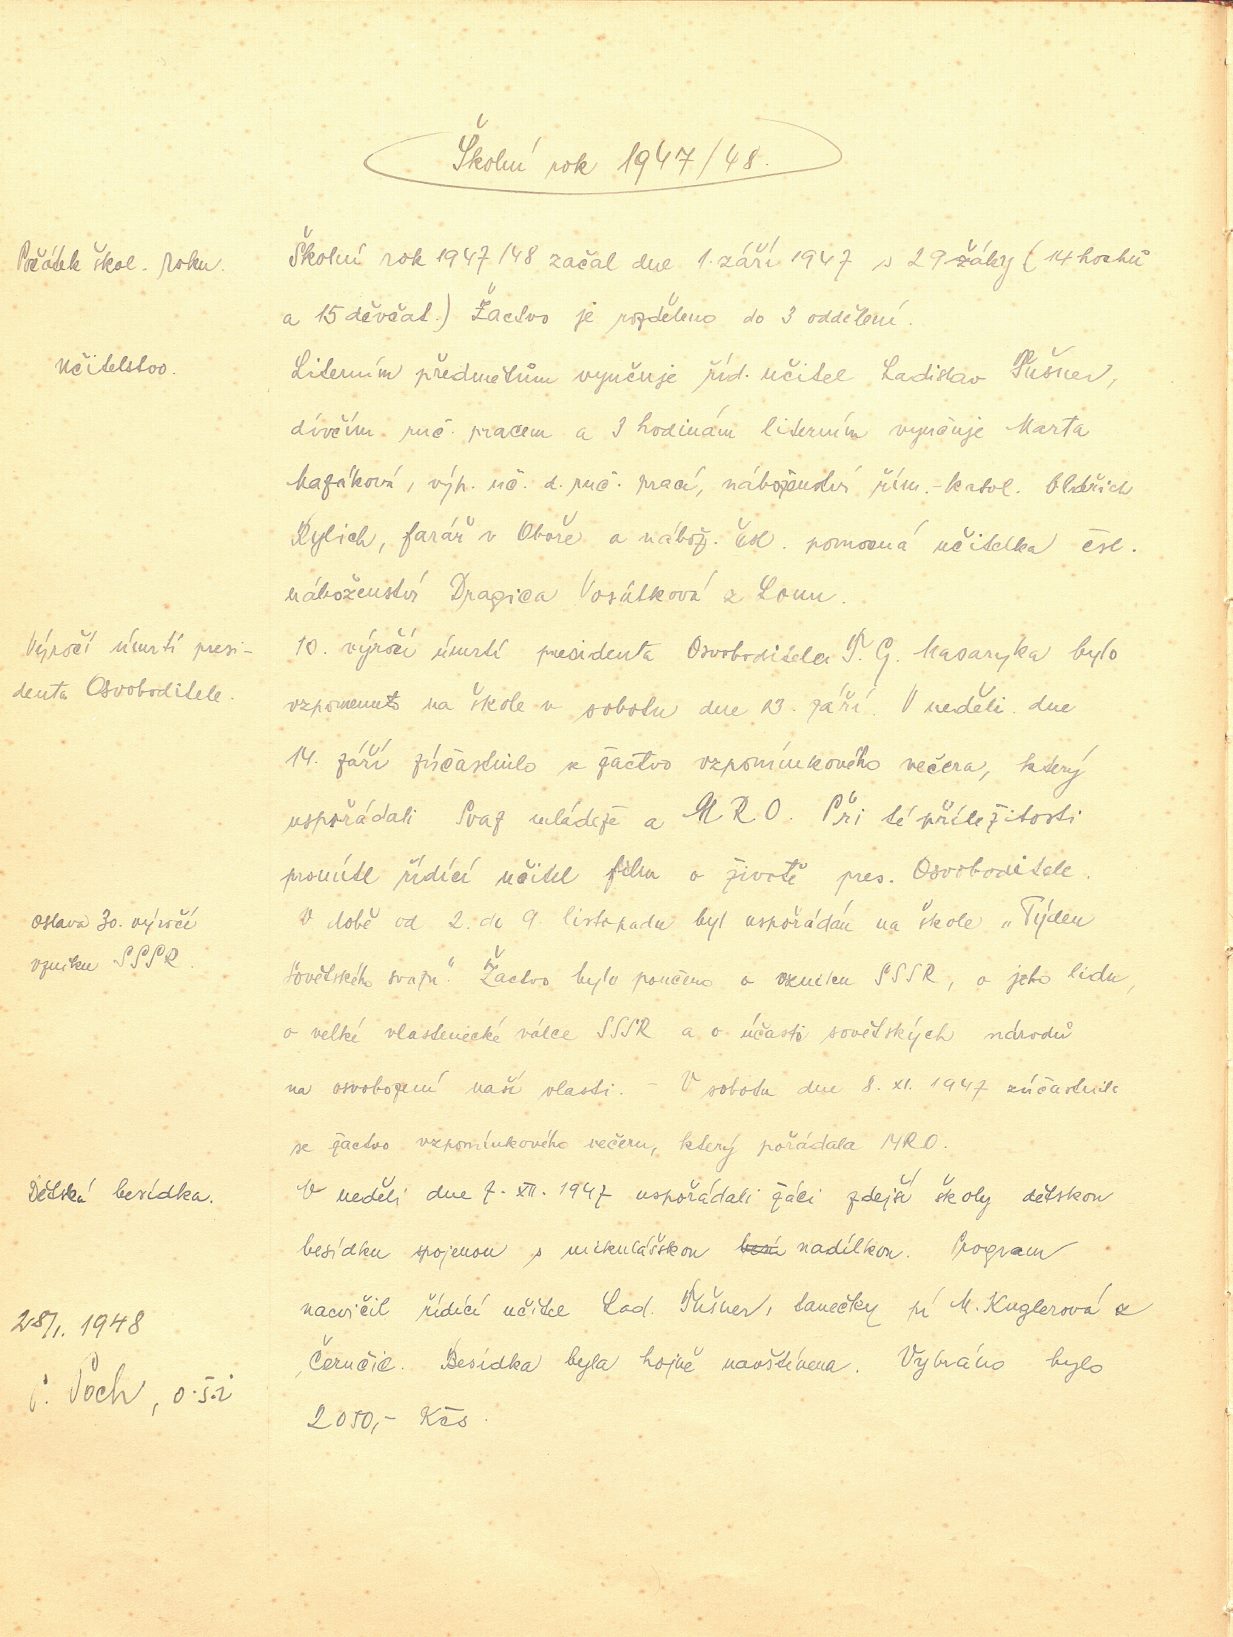 Školní rok 1947/48.
Počátek škol. roku.
Školní rok 1947/48 začal dne 1. září 1947 s 29 žáky (14 hochů
a 15 děvčat.) Žactvo je rozděleno do 3 oddělení.
Učitelstvo.
Literním předmětům vyučuje říd. učitel Ladislav
dívčím ruč. pracem a 3 hodinám literním vyučuje Marta
výp. uč. d. ruč. prací, náboženství řím.-katol. Oldřich
Rylich, farář v Oboře a nábož. čsl. pomocná učitelka čsl.
náboženství Dragica z Loun.
Výročí úmrtí presi-
denta Osvoboditele.
10. výročí úmrtí presidenta Osvoboditele T. G. Masaryka bylo
vzpomenuto na škole v sobotu dne 13. září. V neděli dne
14. září zúčastnilo se žactvo vzpomínkového večera, který
uspořádali Svaz mládeže a MRO. Při té příležitosti
promítl řídící učitel film o životě pres. Osvoboditele.
Oslava 30. výročí
vzniku SSSR.
V době od 2. do 9. listopadu byl uspořádán na škole „Týden
Sovětského svazu". Žactvo bylo poučeno o vzniku SSSR, o jeho lidu,
o velké vlastenecké válce SSSR a o účasti sovětských národů
na osvobození naší vlasti. - V sobotu dne 8. XI. 1947 zúčastnilo
se žactvo vzpomínkového večeru, který pořádala MRO.
Dětská besídka.
V neděli dne 7. XII. 1947 uspořádali žáci zdejší školy dětskou
besídku spojenou s mikulášskou besí nadílkou. Program
nacvičil řídící učitel Lad. tanečky pí M. Kuglerová z
Černčic. Besídka byla hojně navštívena. Vybráno bylo
2050,- Kčs.
28/I. 1948
Poch, o.š.i